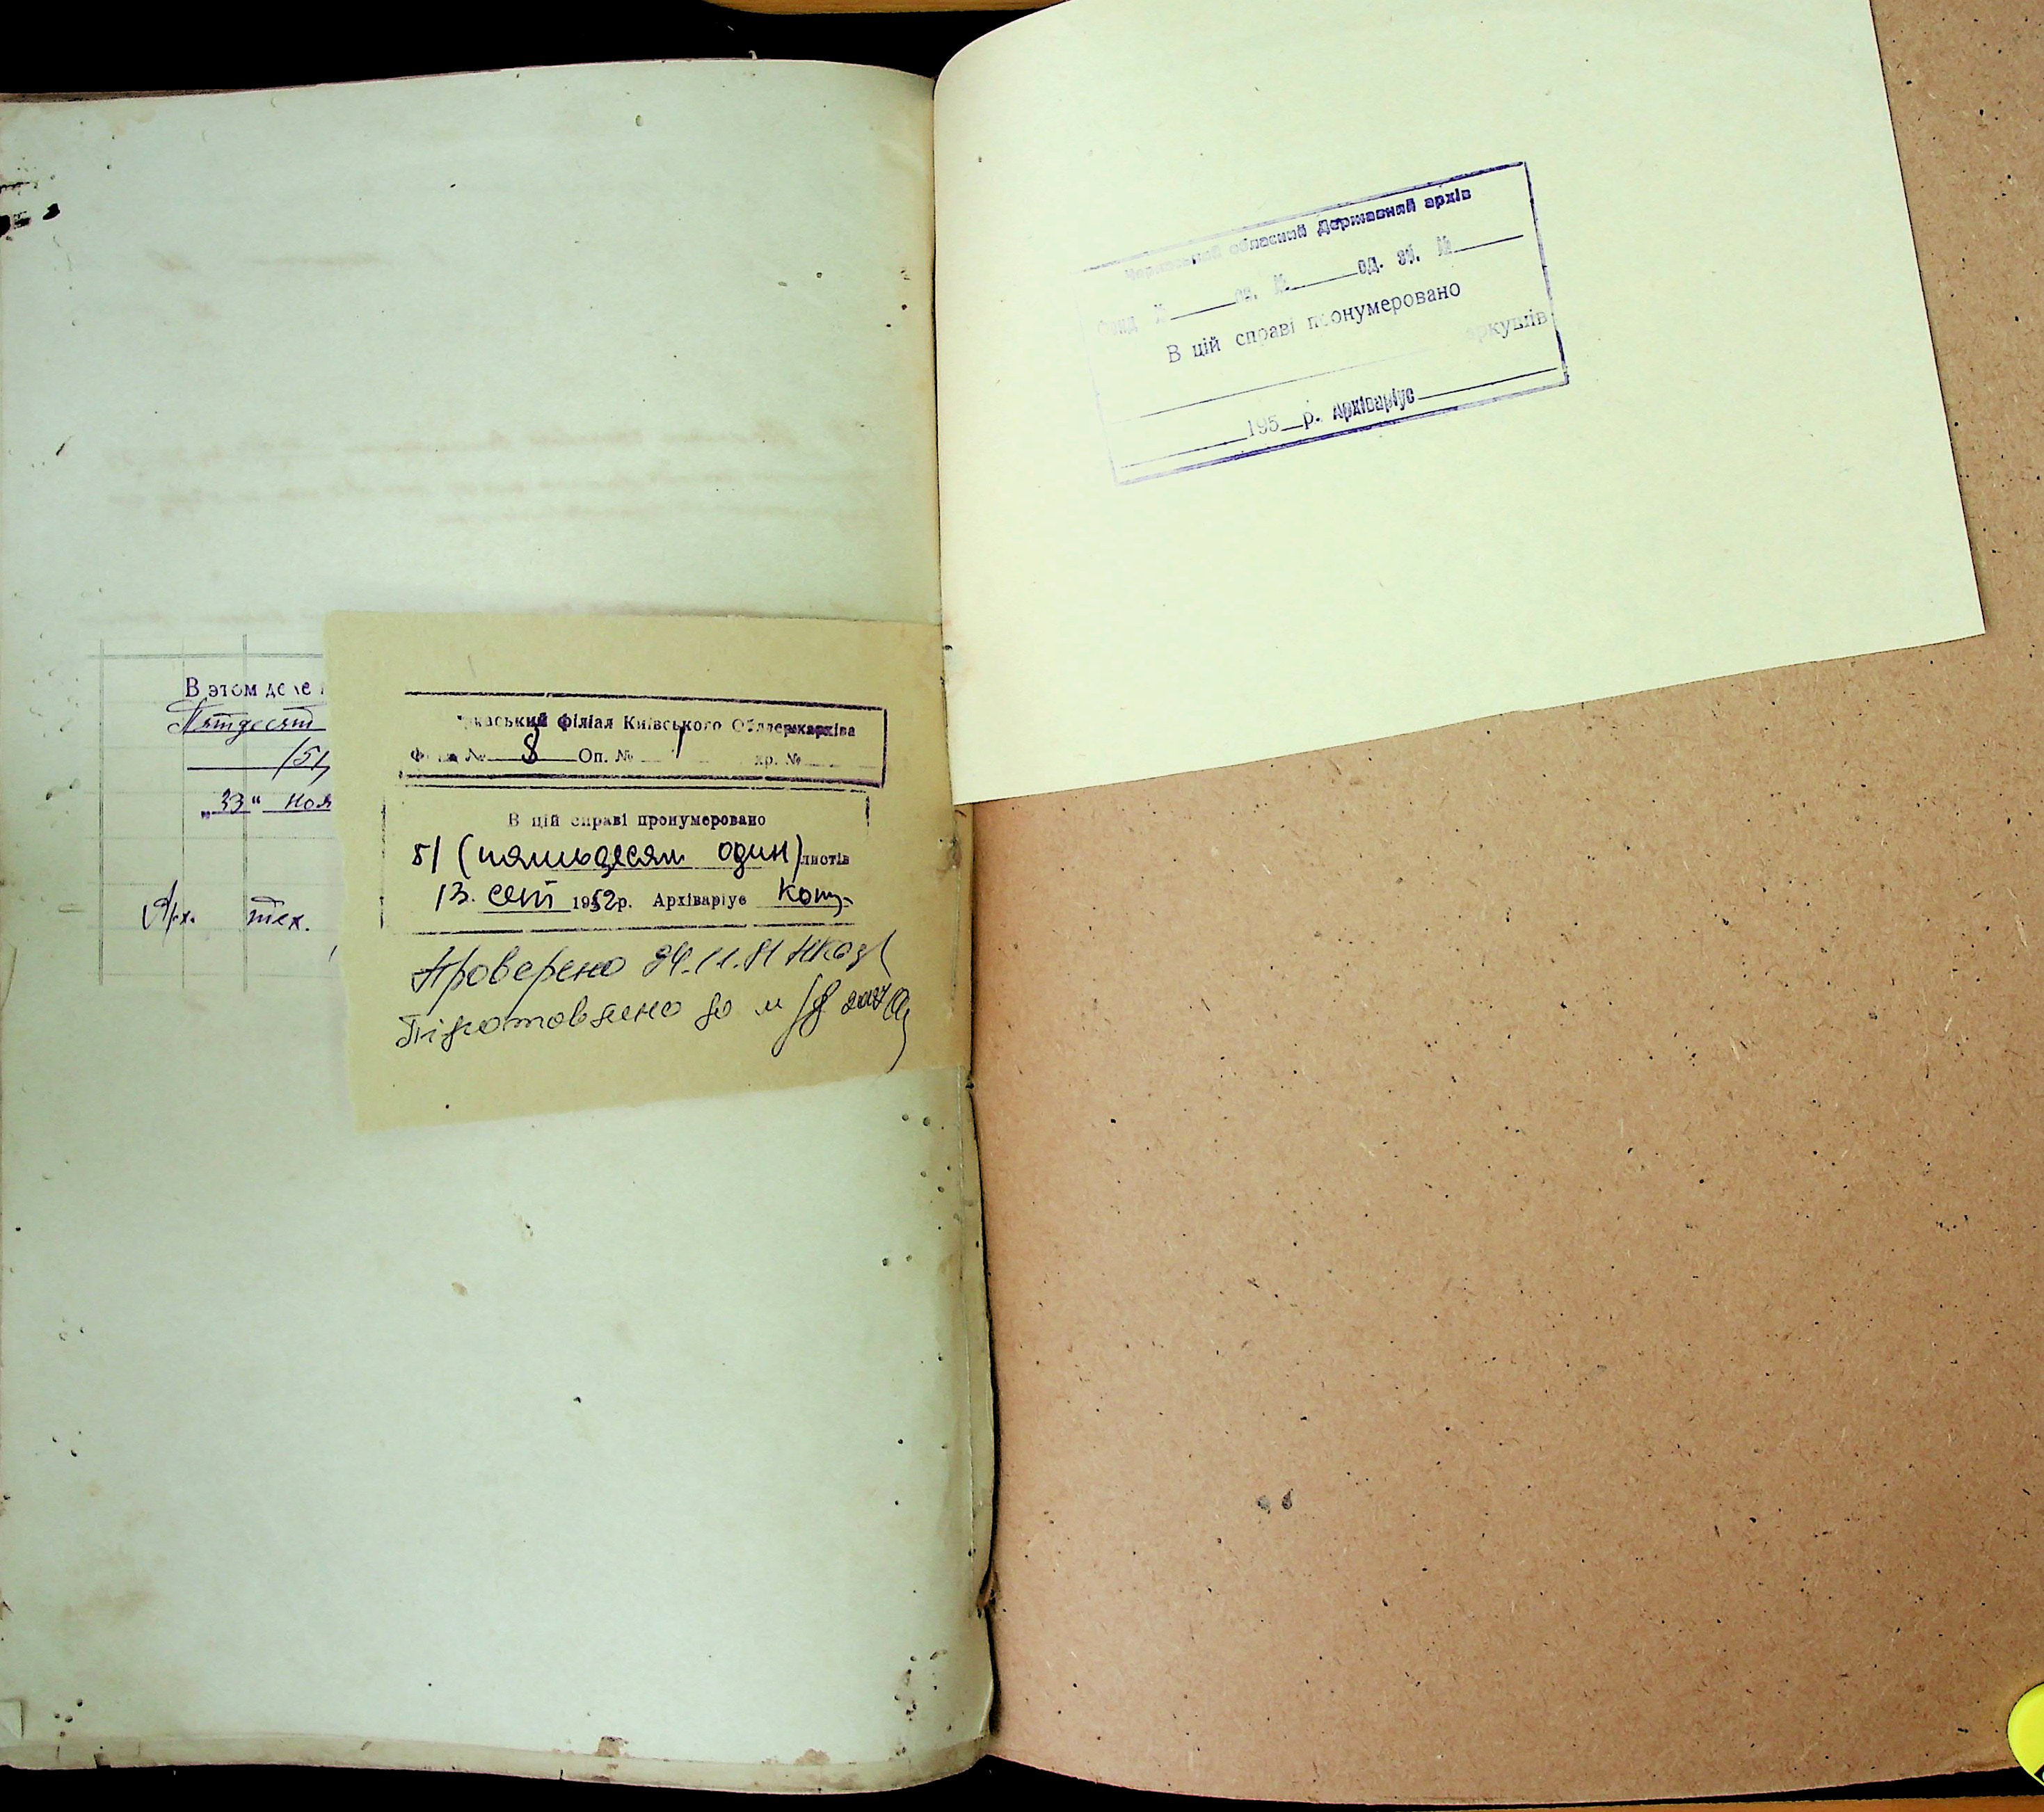 В этом деле
Пятдесят
/51/
"33" ноя
Арх. тех.
каський філіал Київського Облдержархіва
Фонд № 8 Оп. № 1 хр. №
В цій справі пронумеровано
51 (пятьдесят один) листів
13. сент 1952 р. Архіваріус
Проверено 24.11.81
Підготовлено до
Черкаський обласний Державний архів
Фонд № оп. № од. зб. №
В цій справі пронумеровано
аркушів
195 р. Архіваріус